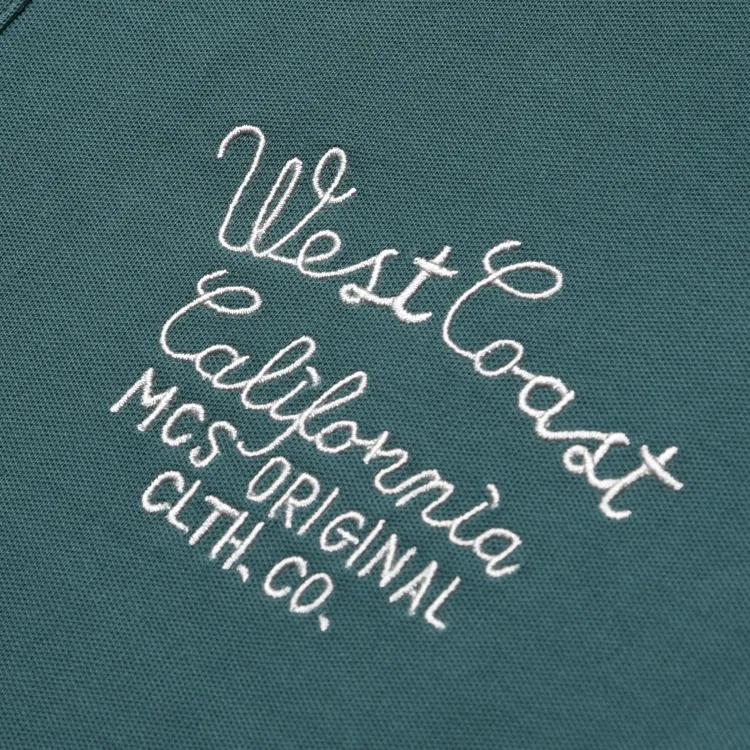 West Coast
California
MCS ORIGINAL
CLTH. CO.